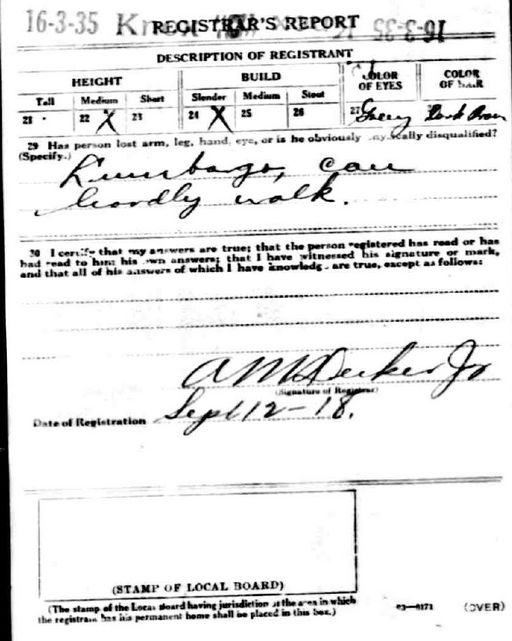 16-3-35 REGISTRAR'S REPORT 16-3-35
DESCRIPTION OF REGISTRANT
HEIGHT BUILD COLOR OF EYES COLOR OF HAIR
Tall Medium Short Slender Medium Stout
21 22 X 23 24 X 25 26 27 Grey Dark Brown
29 Has person lost arm, leg, hand, eye, or is he obviously physically disqualified?
(Specify.)
Lumbago, can
hardly walk.
30 I certify that my answers are true; that the person registered has read or has
had read to him his own answers; that I have witnessed his signature or mark,
and that all of his answers of which I have knowledge are true, except as follows:
A M Decker Jr
(Signature of Registrar)
Date of Registration Sept 12-18.
(STAMP OF LOCAL BOARD)
(The stamp of the Local Board having jurisdiction of the area in which
the registrant has his permanent home shall be placed in this box.)
03-6171 (OVER)